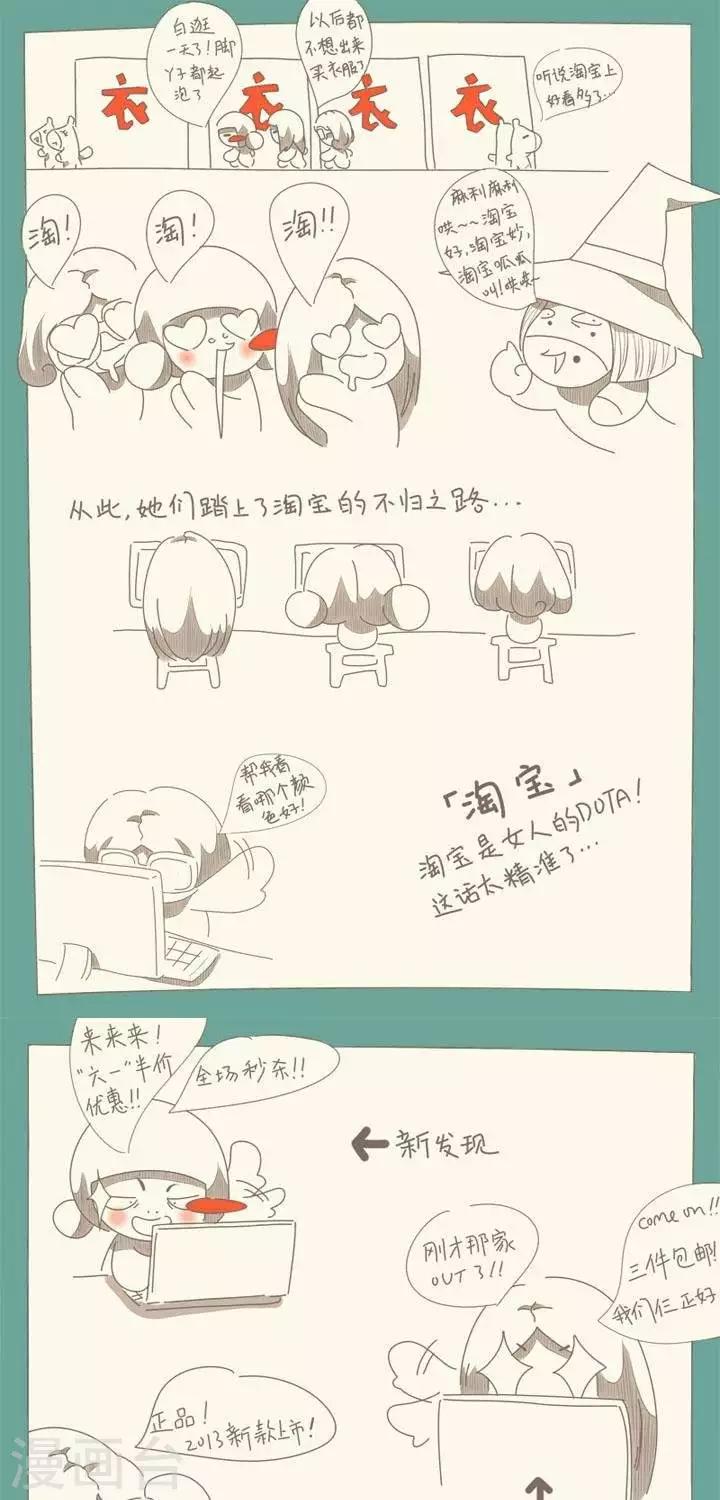 白逛
一天了!脚
丫子都起
泡了
以后都
不想出来
买衣服了
听说淘宝上
好看多了...
衣
衣
衣
衣
淘!
淘!
淘!!
麻利麻利
哄~~淘宝
好,淘宝妙,
淘宝呱呱
叫!哄哄~
从此,她们踏上了淘宝的不归之路...
帮我看
看哪个颜
色好!
「淘宝」
淘宝是女人的DOTA!
这话太精准了...
来来来!
"六一"半价
优惠!!
全场秒杀!!
←新发现
刚才那家
OUT了!!
come on!!
三件包邮!
我们仨正好
正品!
2013新款上市!
漫画台